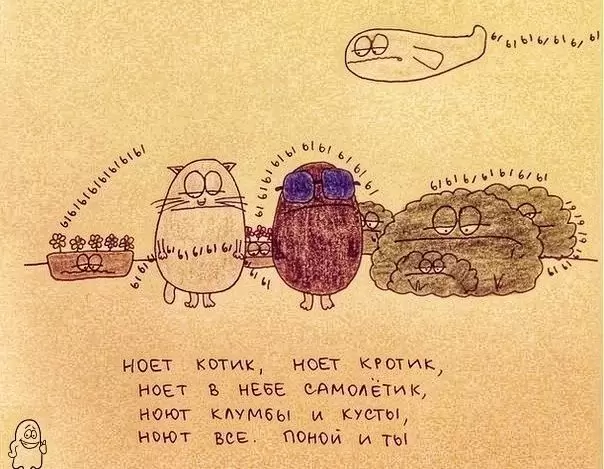 ыыыыыы
ыыыыыыыы
ыыыыыыыыы
ыыыыыы
ыыыыы
НОЕТ КОТИК, НОЕТ КРОТИК,
НОЕТ В НЕБЕ САМОЛЁТИК,
НОЮТ КЛУМБЫ И КУСТЫ,
НОЮТ ВСЕ. ПОНОЙ И ТЫ